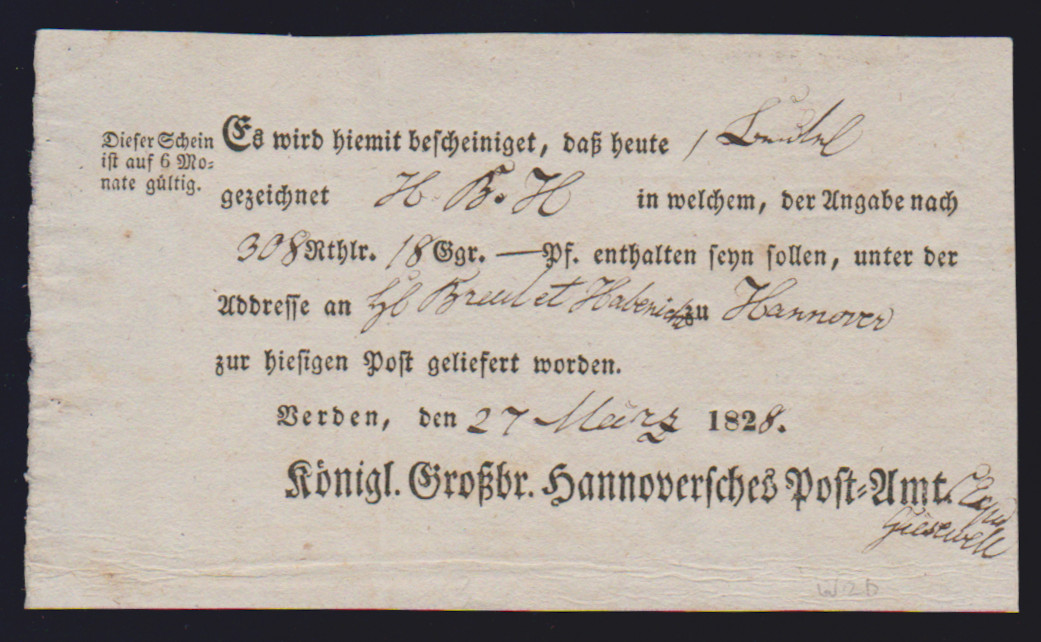 Dieser Schein
ist auf 6 Mo-
nate gültig.
Es wird hiemit bescheiniget, daß heute 1 Beutel
gezeichnet H. B. H in welchem, der Angabe nach
308 Rthlr. 18 Ggr. — Pf. enthalten seyn sollen, unter der
Addresse an Breul et Habenicht zu Hannover
zur hiesigen Post geliefert worden.
Verden, den 27 März 1828.
Königl. Großbr. Hannoversches Post-Amt.